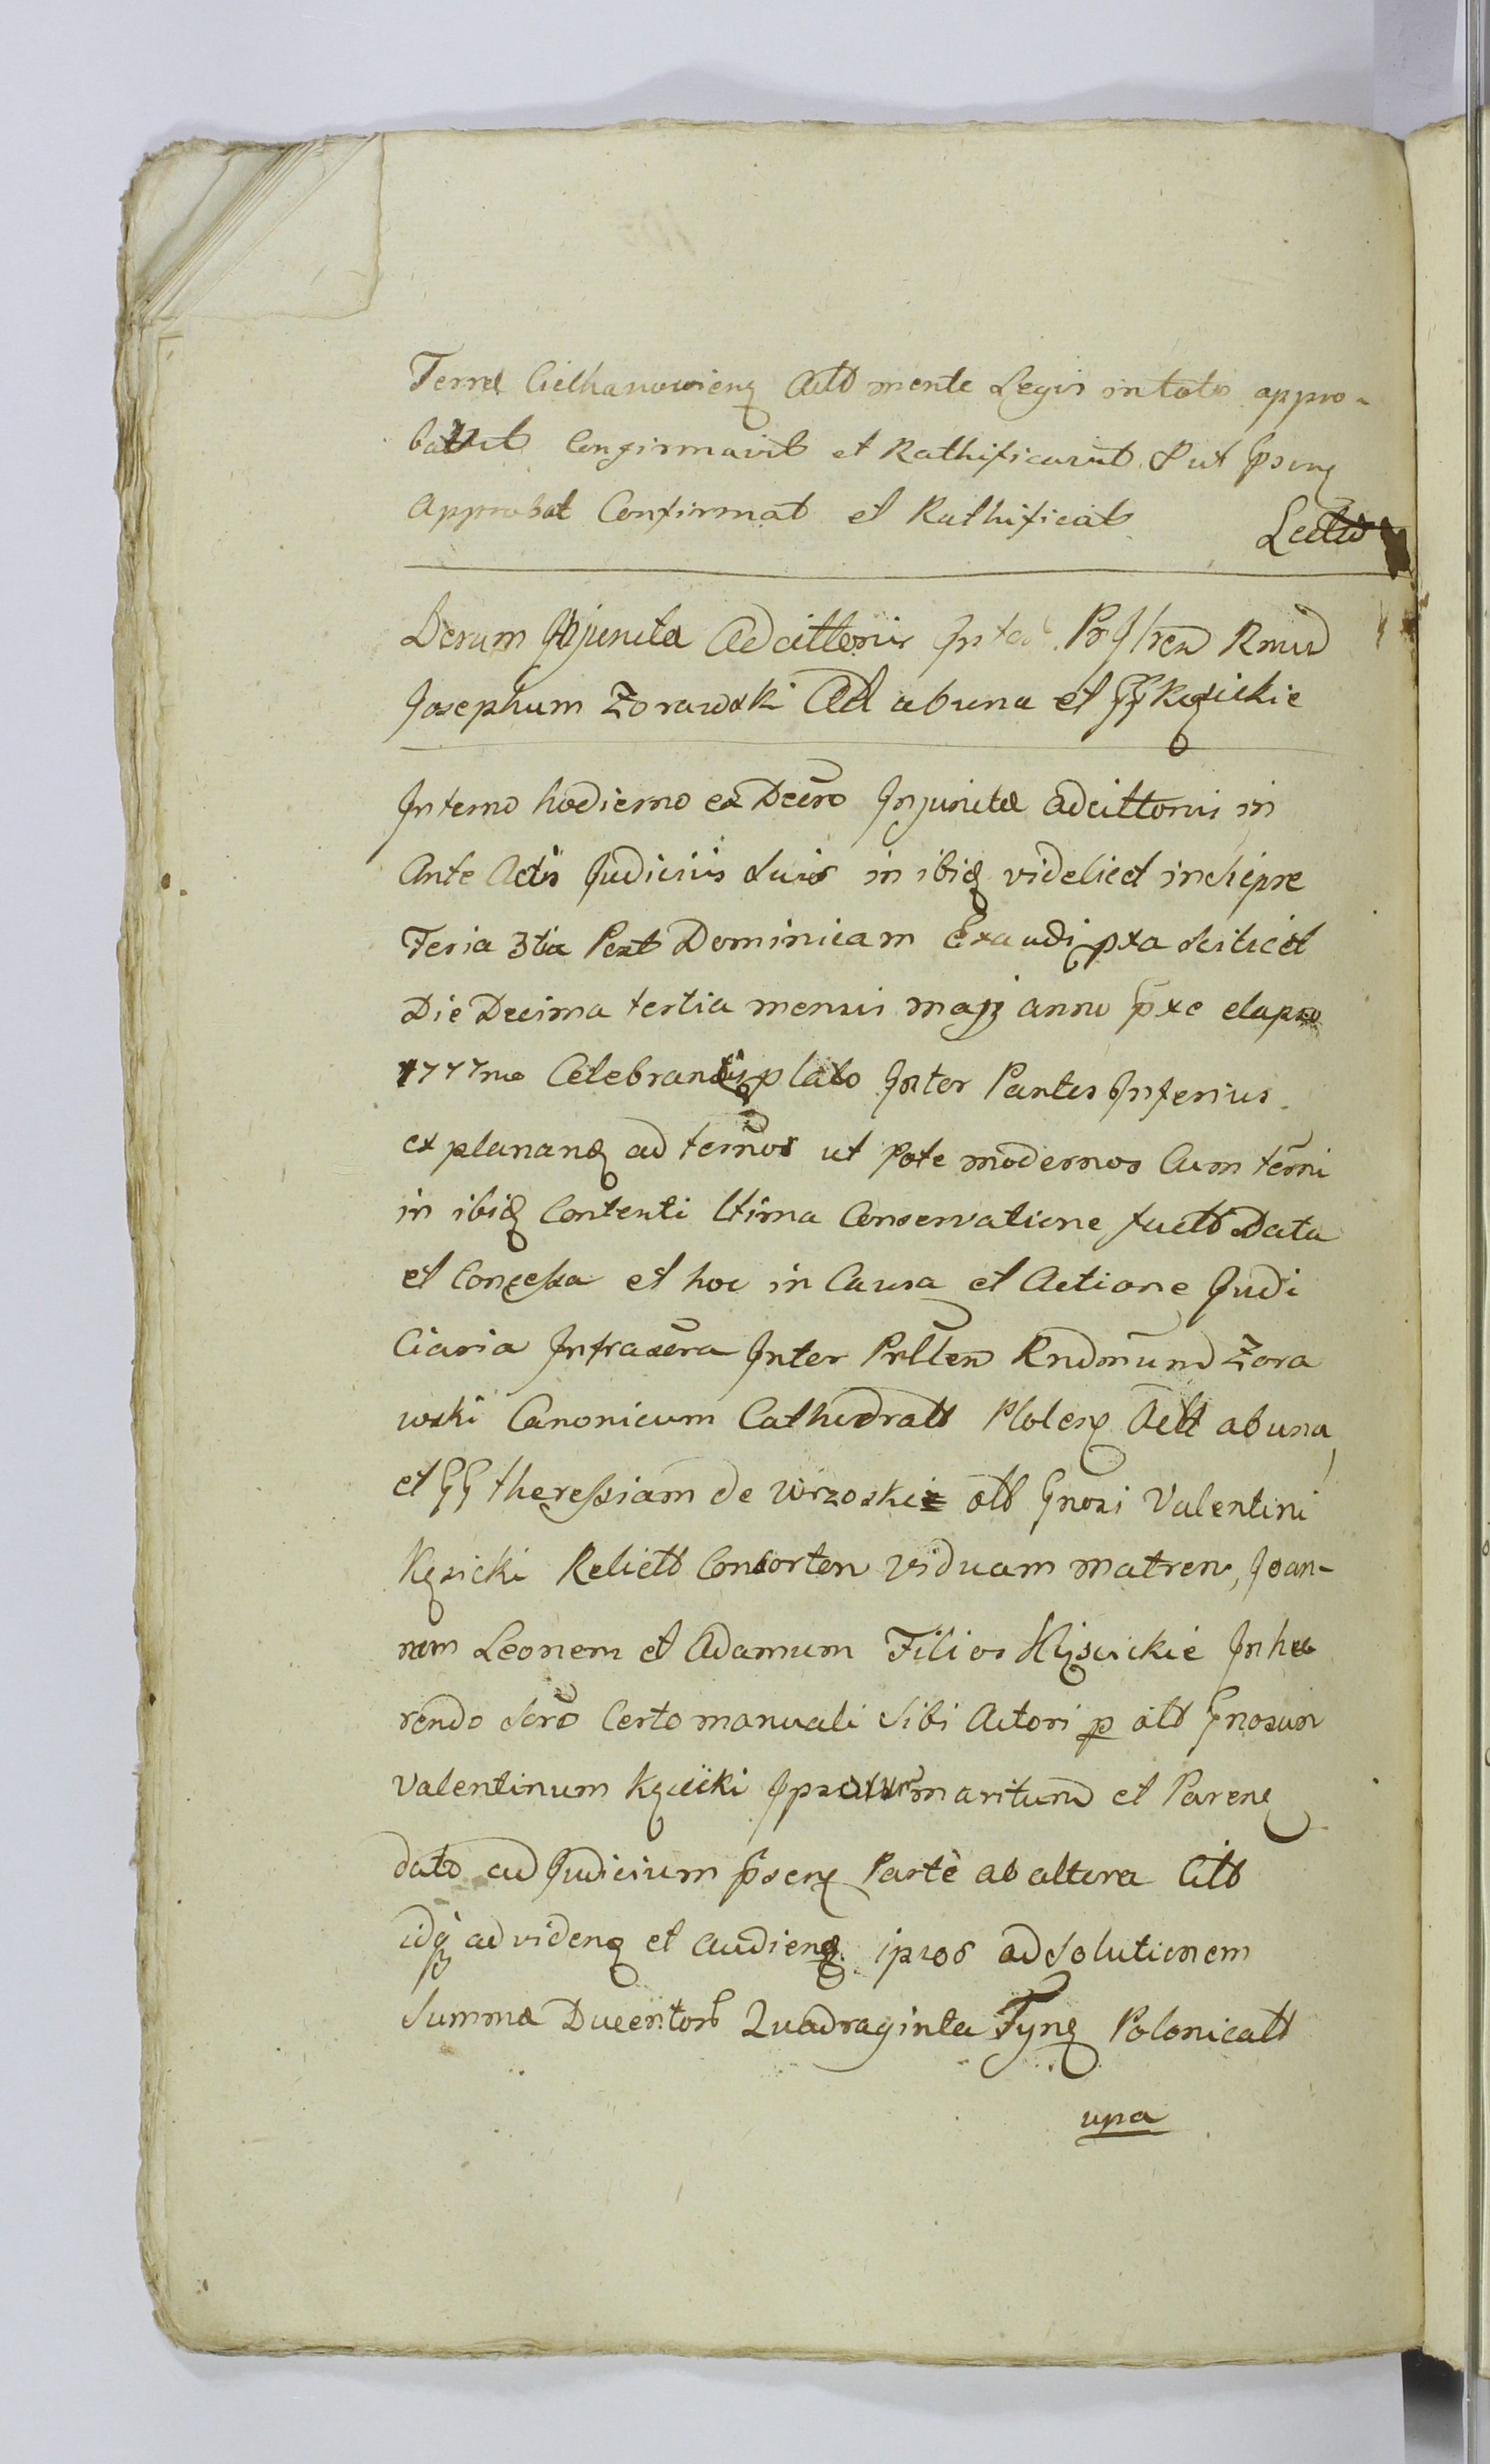 Terræ Ciechanovieng Actt mente Legis in toto appro-
bavit Confirmavit et Rathificavit. Put psung
Approbat Confirmat et Rathificat.
Lectt
Derum Injuncta Adcittonis Inter Prillren Rmud
Josephum Zorawski Act ab una et GG Kęsickie
In termo hodierno ex Decro Injunctæ adcittonis in
Ante Actis Judiciis suis in ibiq videlicet in Siepre
Feria 3tia Post Dominicam Exaudi pxa scilicet
Die Decima tertia mensis maji anno pxe elapso
1777mo Celebrandis plato Inter Partes Inferius
explanang ad termos ut pote modernos Cum termi
in ibiq Contenti ltima Conservatione fuett Data
et Concessa et hoc in Causa et Actione Judi
Ciaria Infrascra Inter Prllen Rndmund Zora
wski Canonicum Cathedralt Ploceng Actt ab una,
et GG theressiam de Wrzoski olt Gnosi Valentini
Kęsicki Relictt Consorten viduam matrem, Joan-
nem Leonem et Adamum Filios Kęsickie Inhæ
rendo Scro Certo manuali sibi Actori p olt Gnosum
Valentinum Kęsicki Ipsorum maritum et Pareng
dato ad Judicium pseng Parte ab altera Citt
idq ad videng et audieng ipsos ad Solutionem
Summæ Ducentorb Quadraginta Fyng Polonicalt
una